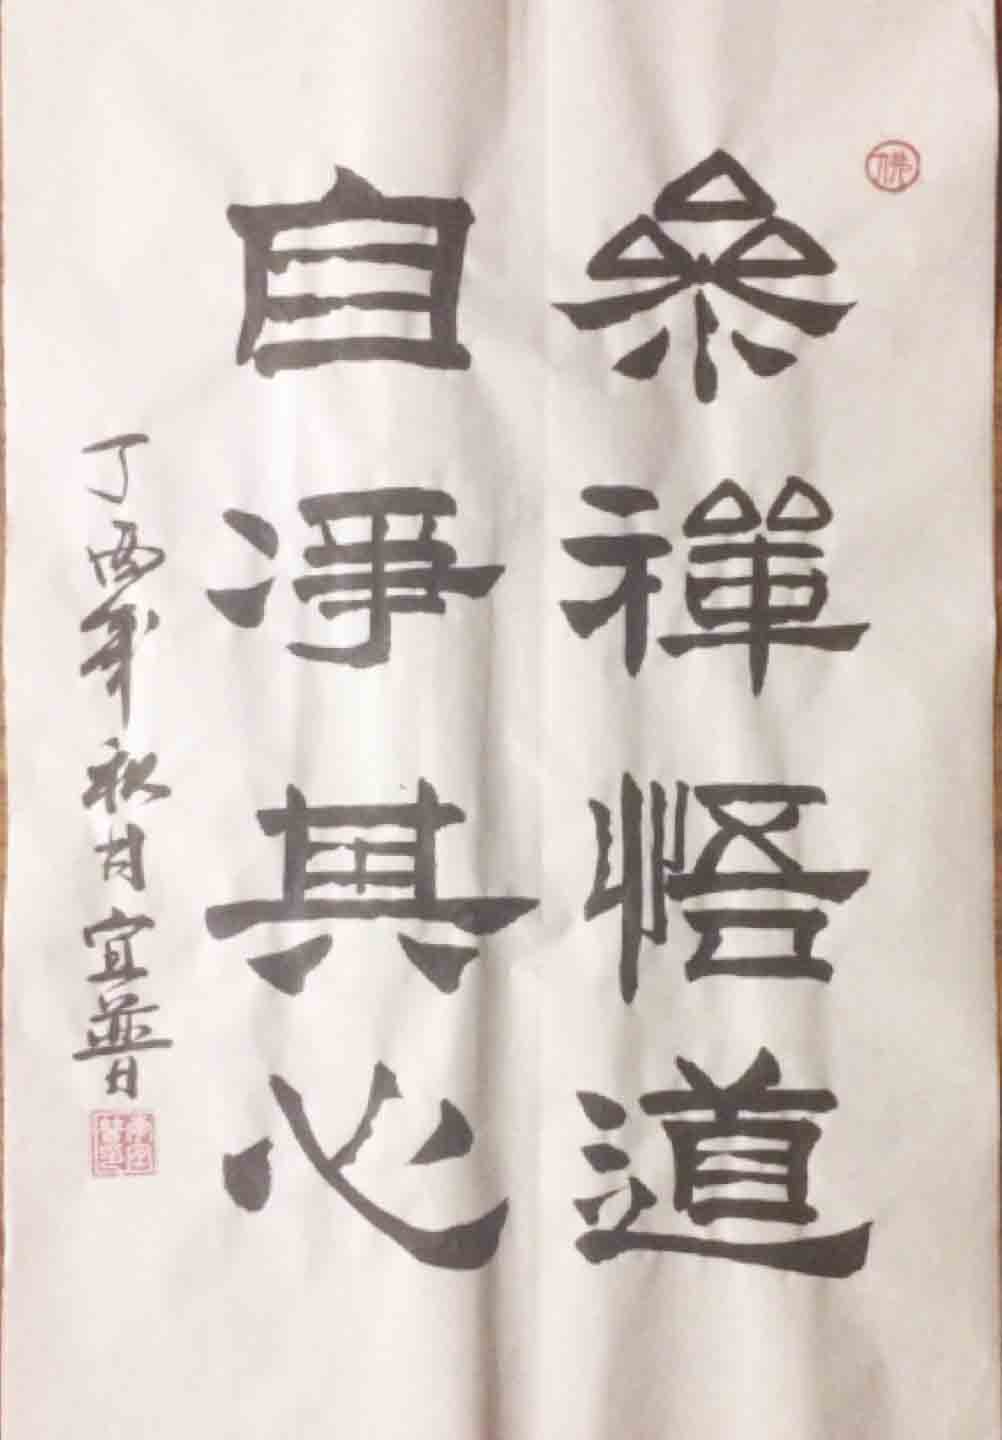 佛
參禪悟道
自淨其心
丁酉年秋月宜普